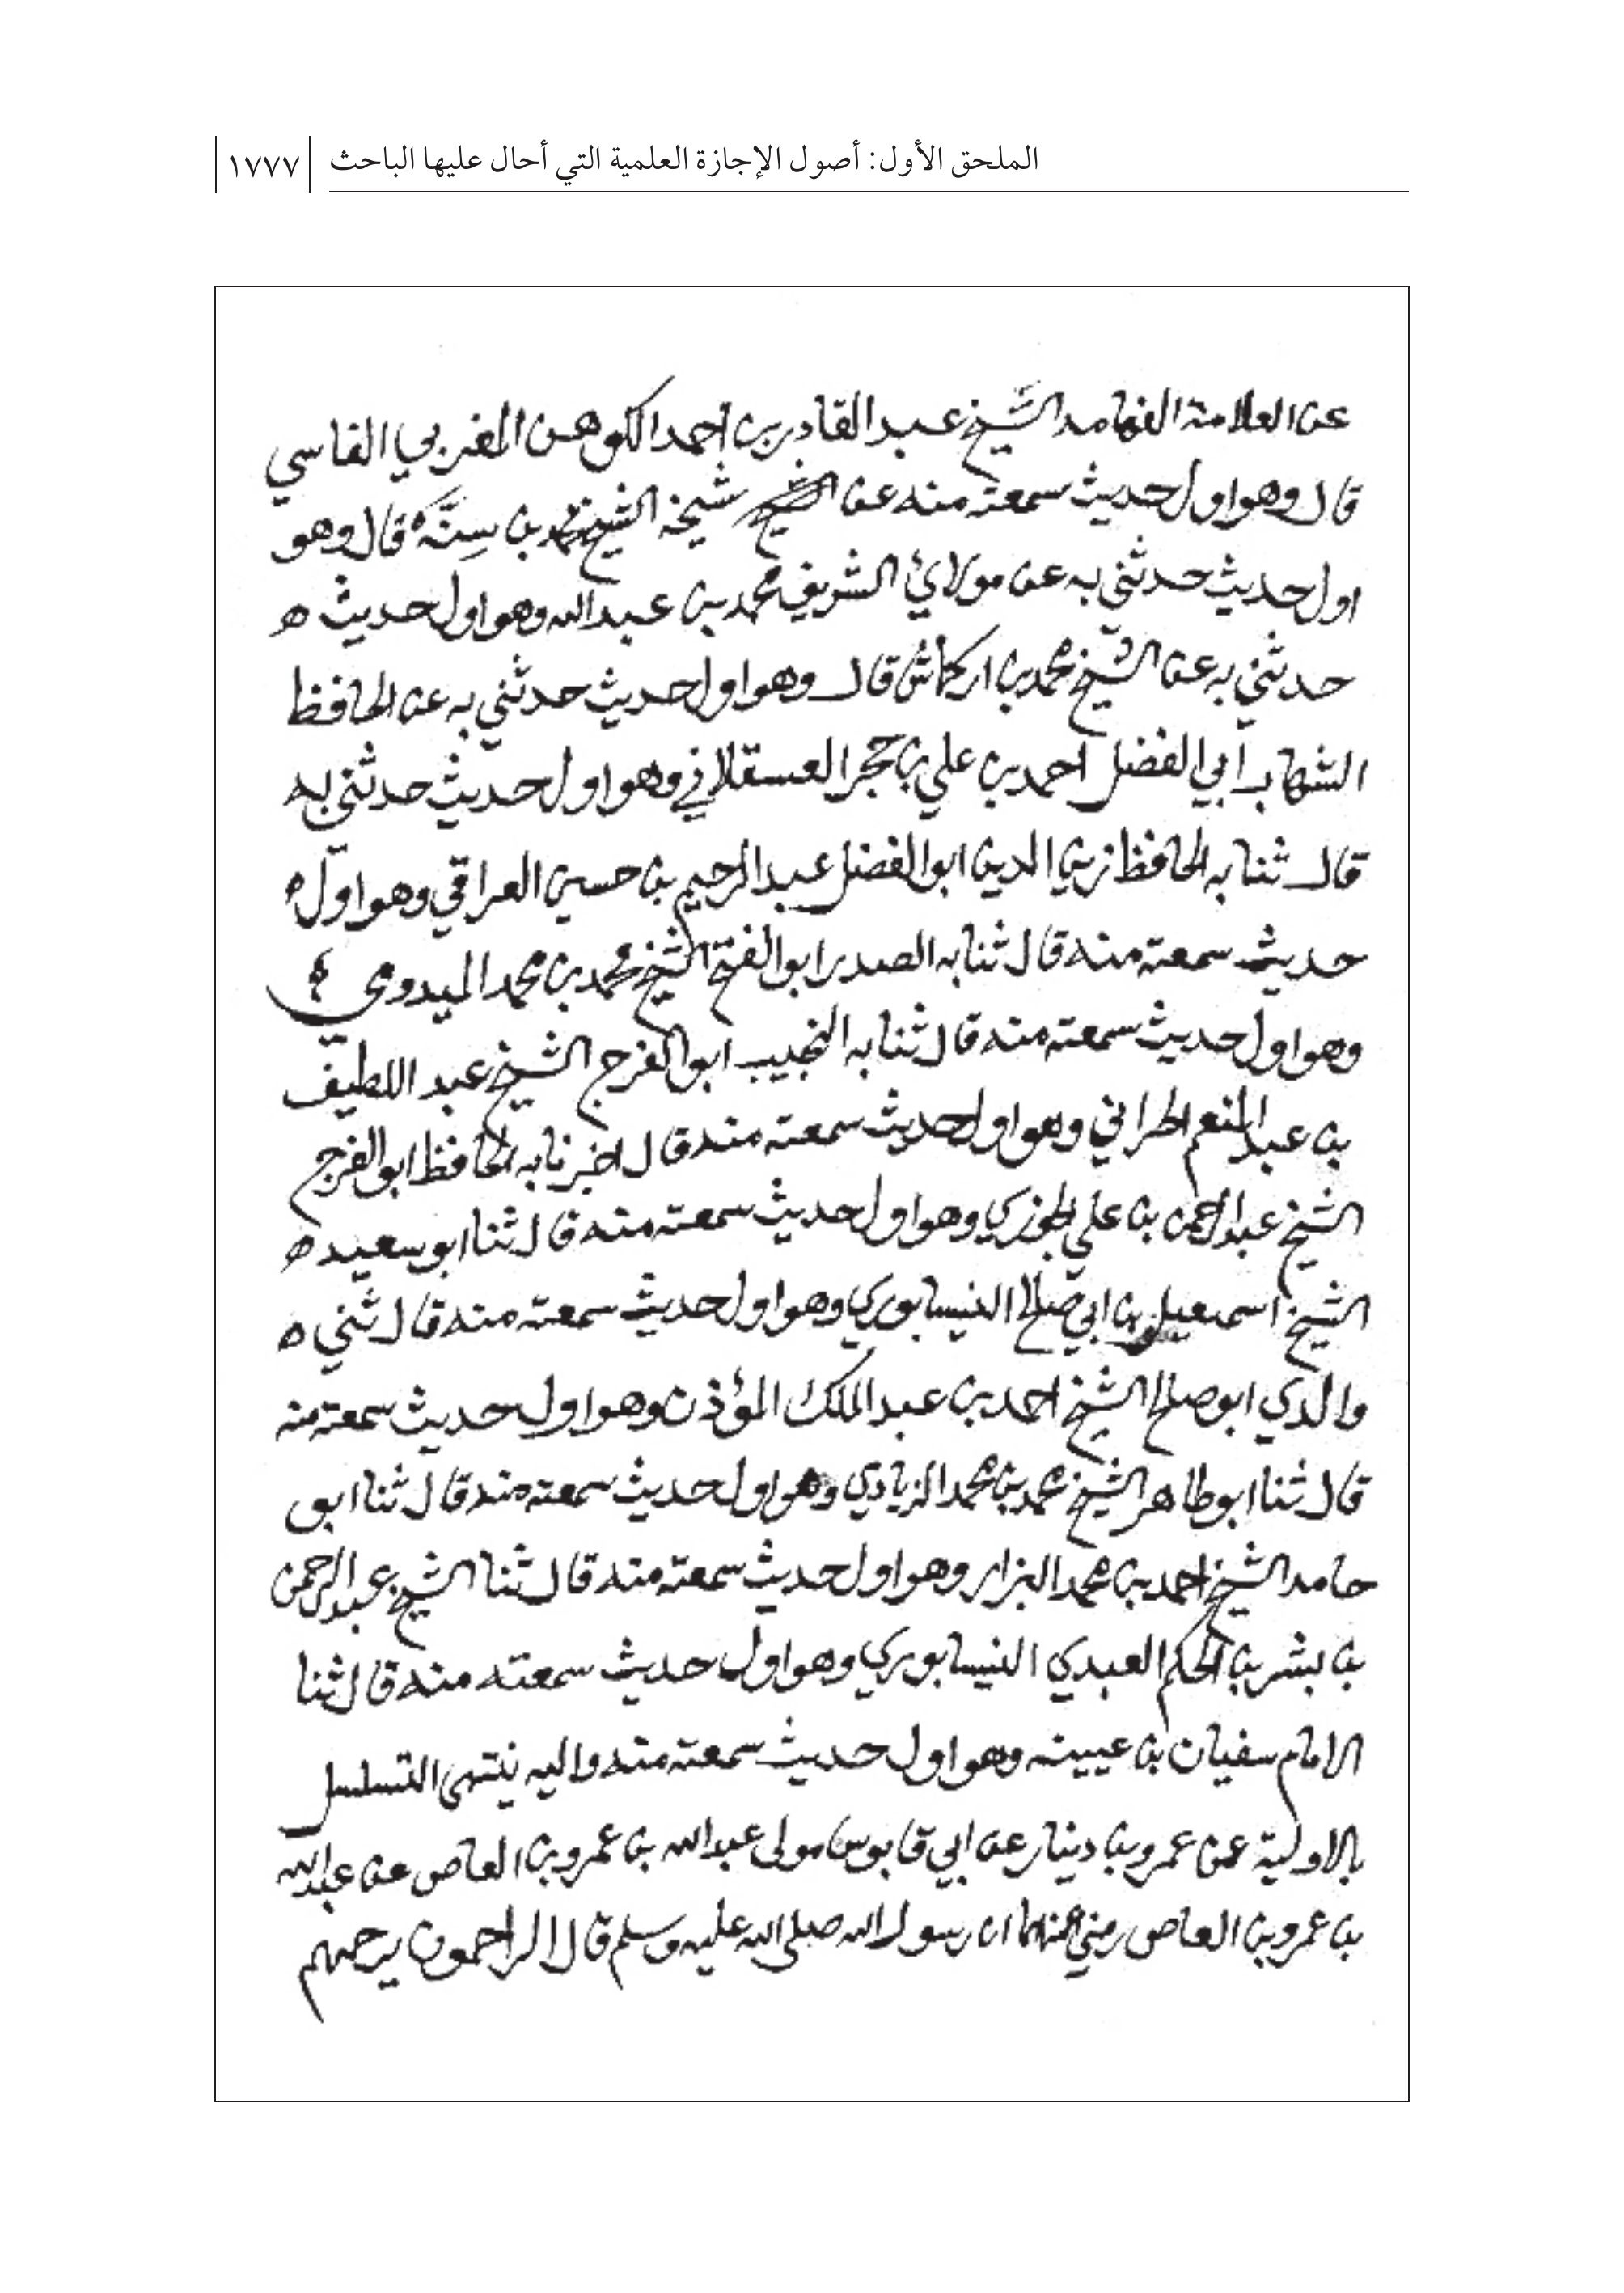 الملحق الأول: أصول الإجازة العلمية التي أحال عليها الباحث
١٧٧٧
عن العلامة الفهامه الشيخ عبد القادر بن أحمد الكوهن المغربي الفاسي
قال وهو اول حديث سمعته منه عن الشيخ شيخه الشيخ محمد بن سِنَّه قال وهو
اول حديث حدثني به عن مولائ الشريف محمد بن عبد الله وهو اول حديث ه
حدثني به عن الشيخ محمد بن اركماش قال وهو اول حديث حدثني به عن الحافظ
الشهاب أبي الفضل احمد بن علي بن حجر العسقلاني وهو اول حديث حدثني به
قال ثنا به الحافظ زين الدين ابو الفضل عبد الرحيم بن حسين العراقي وهو اول ه
حديث سمعته منه قال ثنا به الصدر ابو الفتح الشيخ محمد بن محمد الميدومي
وهو اول حديث سمعته منه قال ثنا به النجيب ابو الفرج الشيخ عبد اللطيف
بن عبد المنعم الحراني وهو اول حديث سمعته منه قال اخبرنا به الحافظ ابو الفرج
الشيخ عبد الرحمن بن علي الجوزي وهو اول حديث سمعته منه قال ثنا ابو سعيد ه
الشيخ اسمعيل بن ابي صلح النيسابوري وهو اول حديث سمعته منه قال ثني ه
والدي ابو صلح الشيخ احمد بن عبد الملك المؤذن وهو اول حديث سمعته منه
قال ثنا ابو طاهر الشيخ محمد بن محمد الزيادي وهو اول حديث سمعته منه قال ثنا ابو
حامد الشيخ احمد بن محمد البزار وهو اول حديث سمعته منه قال ثنا الشيخ عبد الرحمن
بن بشر بن الحكم العبدي النيسابوري وهو اول حديث سمعته منه قال ثنا
الامام سفيان بن عيينه وهو اول حديث سمعته منه واليه ينتهى التسلسل
بالاولية عن عمرو بن دينار عن ابي قابوس مولى عبد الله بن عمرو بن العاص عن عبد الله
بن عمرو بن العاص رضي عنهما ان رسول الله صلى الله عليه وسلم قال الراحمون يرحمهم